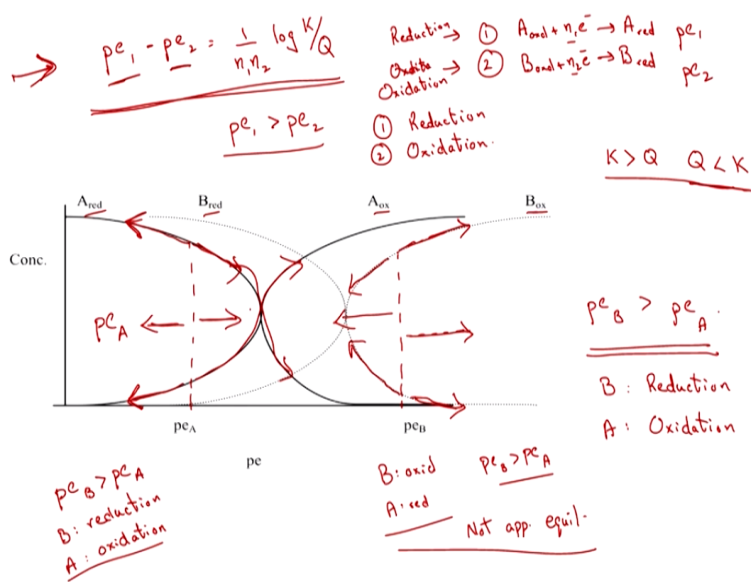 pe₁ - pe₂ = 1/n₁n₂ log K/Q
pe₁ > pe₂
Reduction → ① A oxd + n₁e⁻ → A red pe₁
Oxidation → ② B oxd + n₂e⁻ → B red pe₂
① Reduction
② Oxidation.
K > Q Q < K
A red B red A ox B ox
Conc.
pe A
pe A pe B
pe
pe B > pe A.
B : Reduction
A : Oxidation
pe B > pe A
B : reduction
A : oxidation
B : oxid pe B > pe A
A : red
Not app. equil.